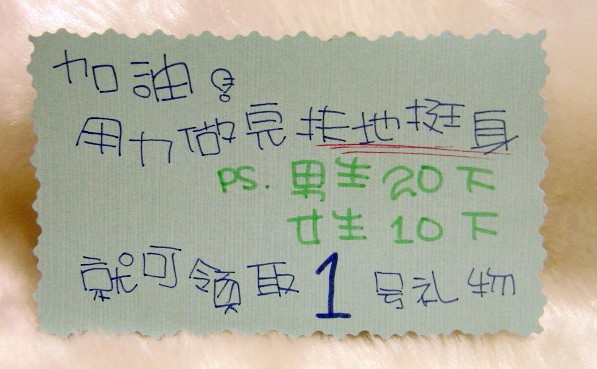 加油!
用力做完扶地挺身
PS. 男生20下
女生10下
就可領取1号礼物